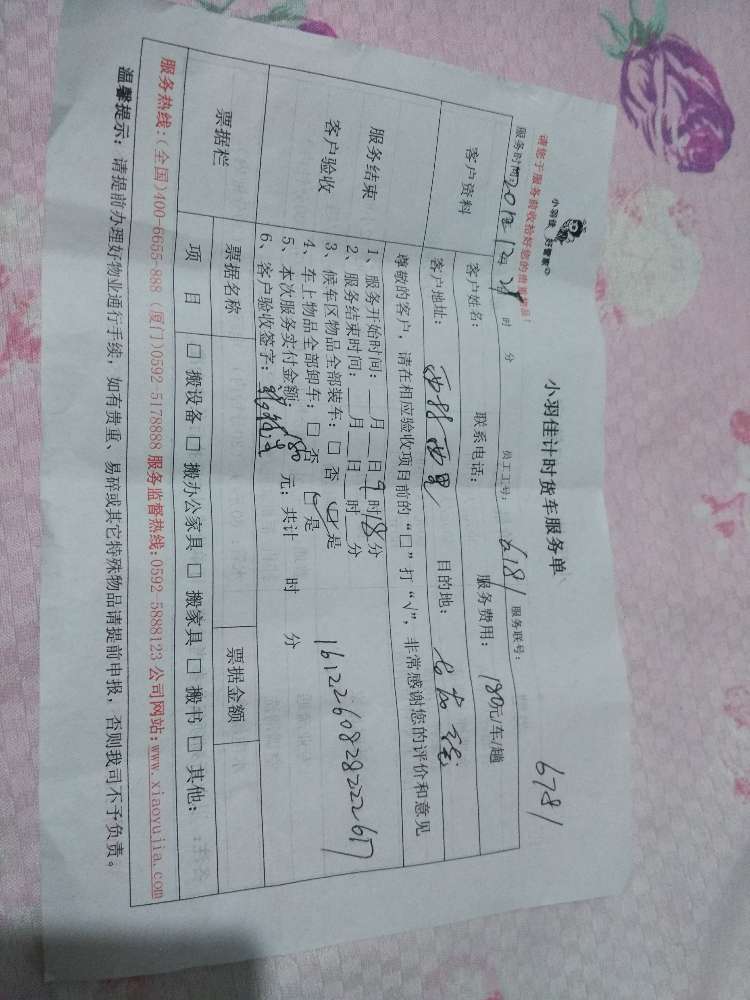 小羽佳 好管家
小羽佳计时货车服务单
6781
请您于服务前收拾好您的贵重物品!
服务时间:2017 12 28 时 分 员工工号: 6181 服务联号:
客户资料
客户姓名: 联系电话: 服务费用: 180元/车/趟
客户地址: 西村西里 目的地:
服务结束
客户验收
尊敬的客户,请在相应验收项目前的“□”打“√”,非常感谢您的评价和意见
1、服务开始时间:__月__日9时18分
2、服务结束时间:__月__日__时__分
3、候车区物品全部装车:□ 否 ☑是
4、车上物品全部卸车:□ 否 ☑是
5、本次服务实付金额:180 元;共计 时 分
6、客户验收签字:
161226082822267
票据栏
票据名称 票据金额
项 目 □ 搬设备 □ 搬办公家具 □ 搬家具 □ 搬书 □ 其他:
服务热线:(全国)400-6655-888 (厦门)0592-5178888 服务监督热线:0592-5888123 公司网站:www.xiaoyujia.com
温馨提示:请提前办理好物业通行手续,如有贵重、易碎或其它特殊物品请提前申报,否则我司不予负责。